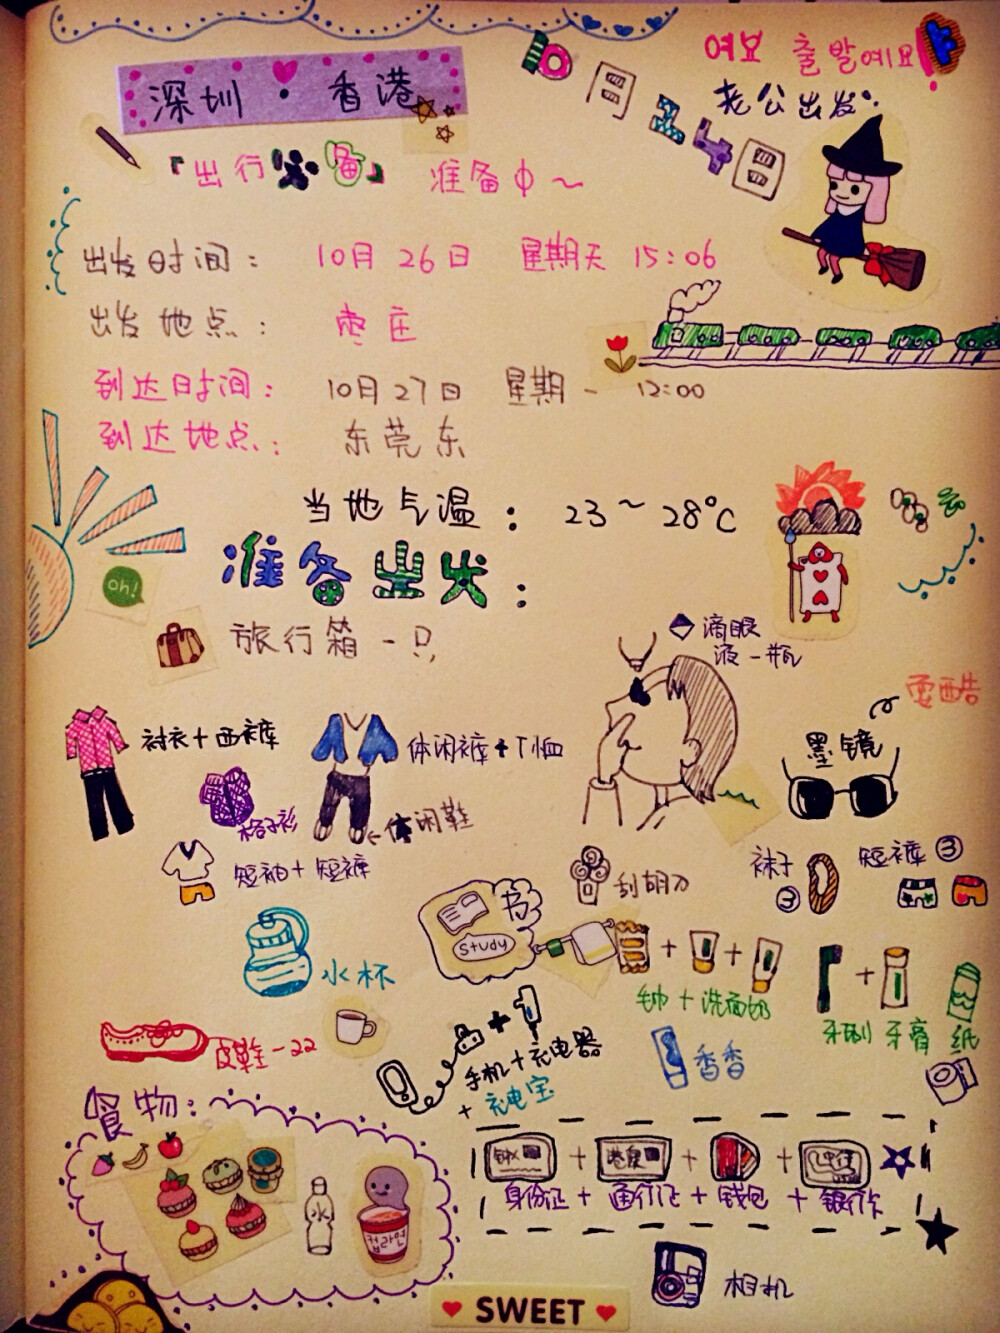 深圳·香港
10月24日
여보 출발예요!
老公出发:
『出行必备』 准备中~
出发时间: 10月26日 星期天 15:06
出发地点: 枣庄
到达时间: 10月27日 星期一 12:00
到达地点: 东莞东
当地气温: 23~28°C
准备出发:
oh!
旅行箱一只
滴眼
液一瓶
耍酷
墨镜
衬衣+西裤
休闲裤+T恤
格子衫
←休闲鞋
短袖+短裤
刮胡刀
袜子
③
短裤③
书
study
水杯
毛巾+洗面奶
牙刷 牙膏 纸
皮鞋一双
手机+充电器
+充电宝
香香
食物:
身份证+通行证+钱包+银行卡
水
컵라면
相机
SWEET